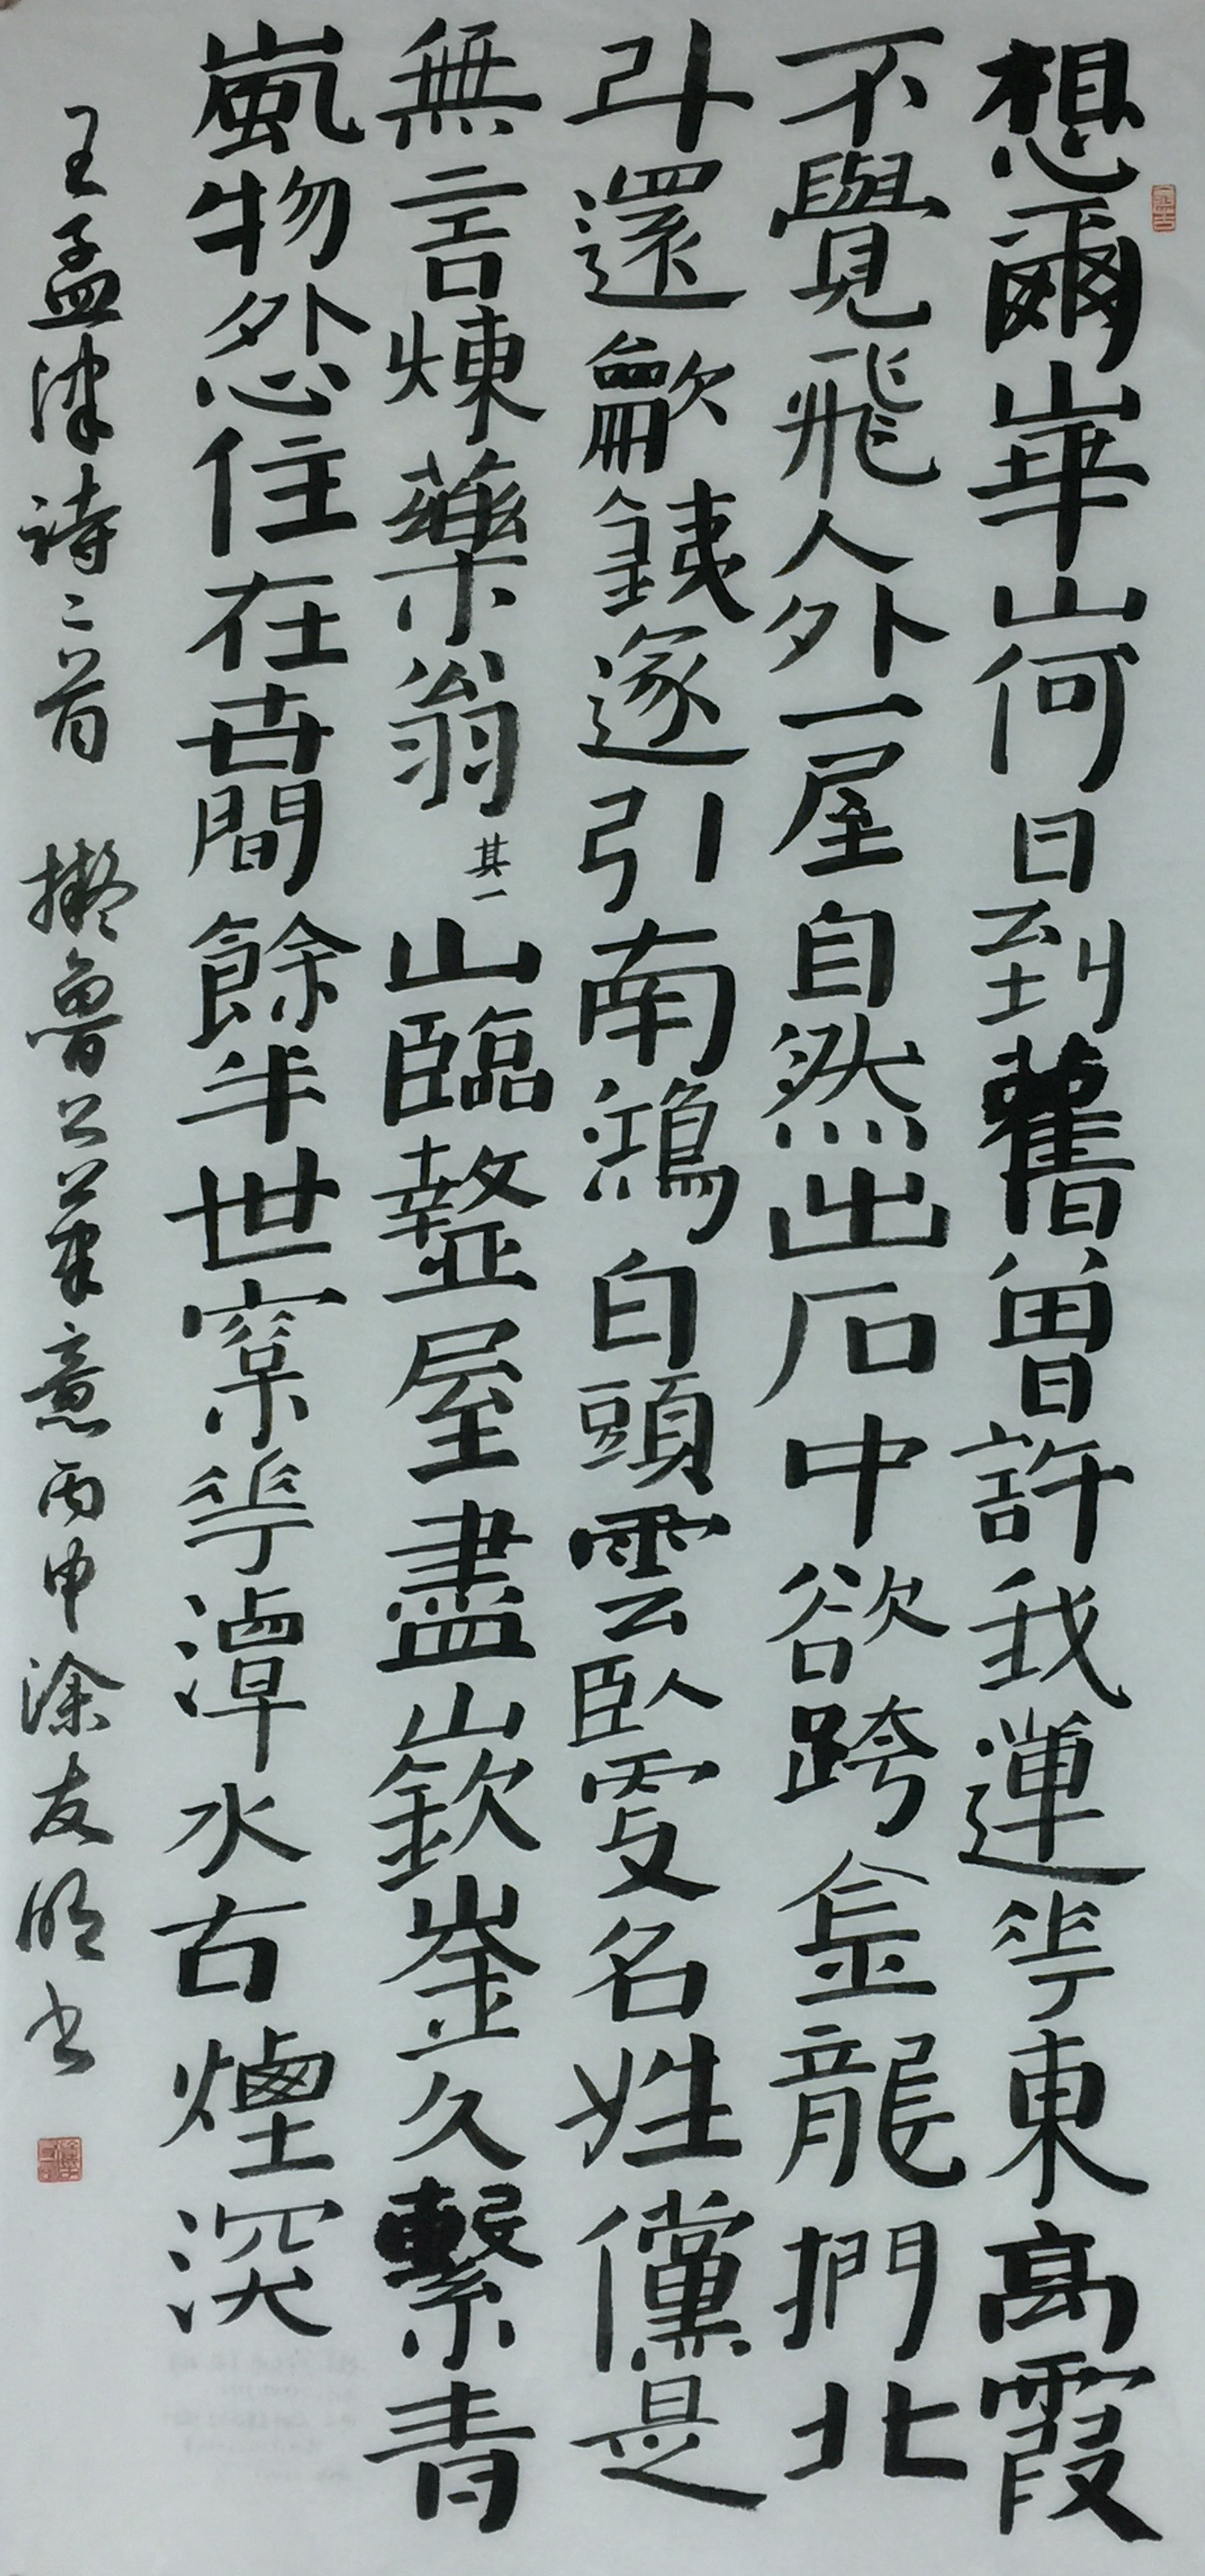 想爾崋山何日到舊曾許我蓮華東高霞
不覺飛人外一屋自然出石中欲跨金龍捫北
斗還龡銕遂引南鴻白頭雲臥變名姓儻是
無言煉藥翁其一山臨盩厔盡嶔崟久繫青
嵐物外心住在世間餘半世窠華潭水古煙深
王孟津詩二首 擬魯公筆意丙申涂友明書